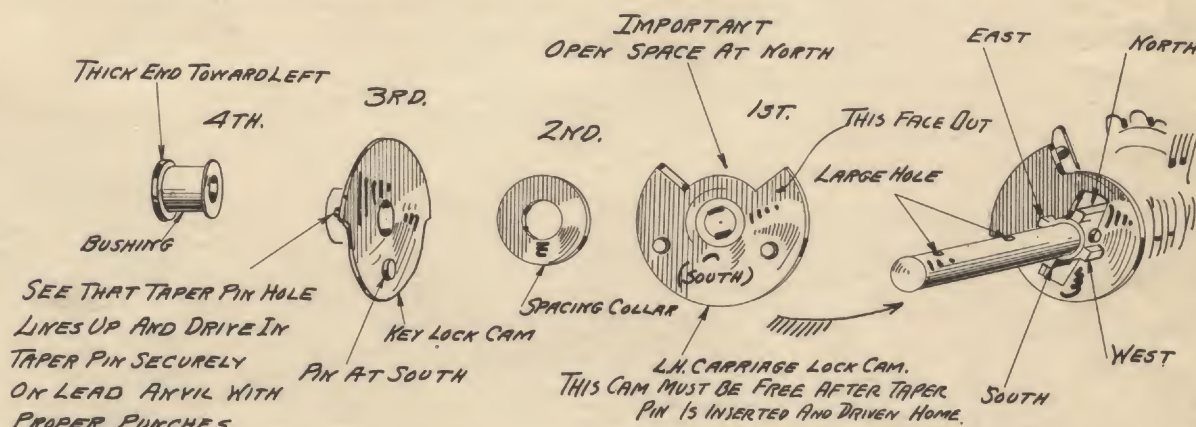 THICK END TOWARD LEFT
4TH.
BUSHING
SEE THAT TAPER PIN HOLE
LINES UP AND DRIVE IN
TAPER PIN SECURELY
ON LEAD ANVIL WITH
PROPER PUNCHES
3RD.
KEY LOCK CAM
PIN AT SOUTH
2ND.
SPACING COLLAR
IMPORTANT
OPEN SPACE AT NORTH
1ST.
THIS FACE OUT
LARGE HOLE
(SOUTH)
L.H. CARRIAGE LOCK CAM.
THIS CAM MUST BE FREE AFTER TAPER
PIN IS INSERTED AND DRIVEN HOME.
EAST
NORTH
WEST
SOUTH